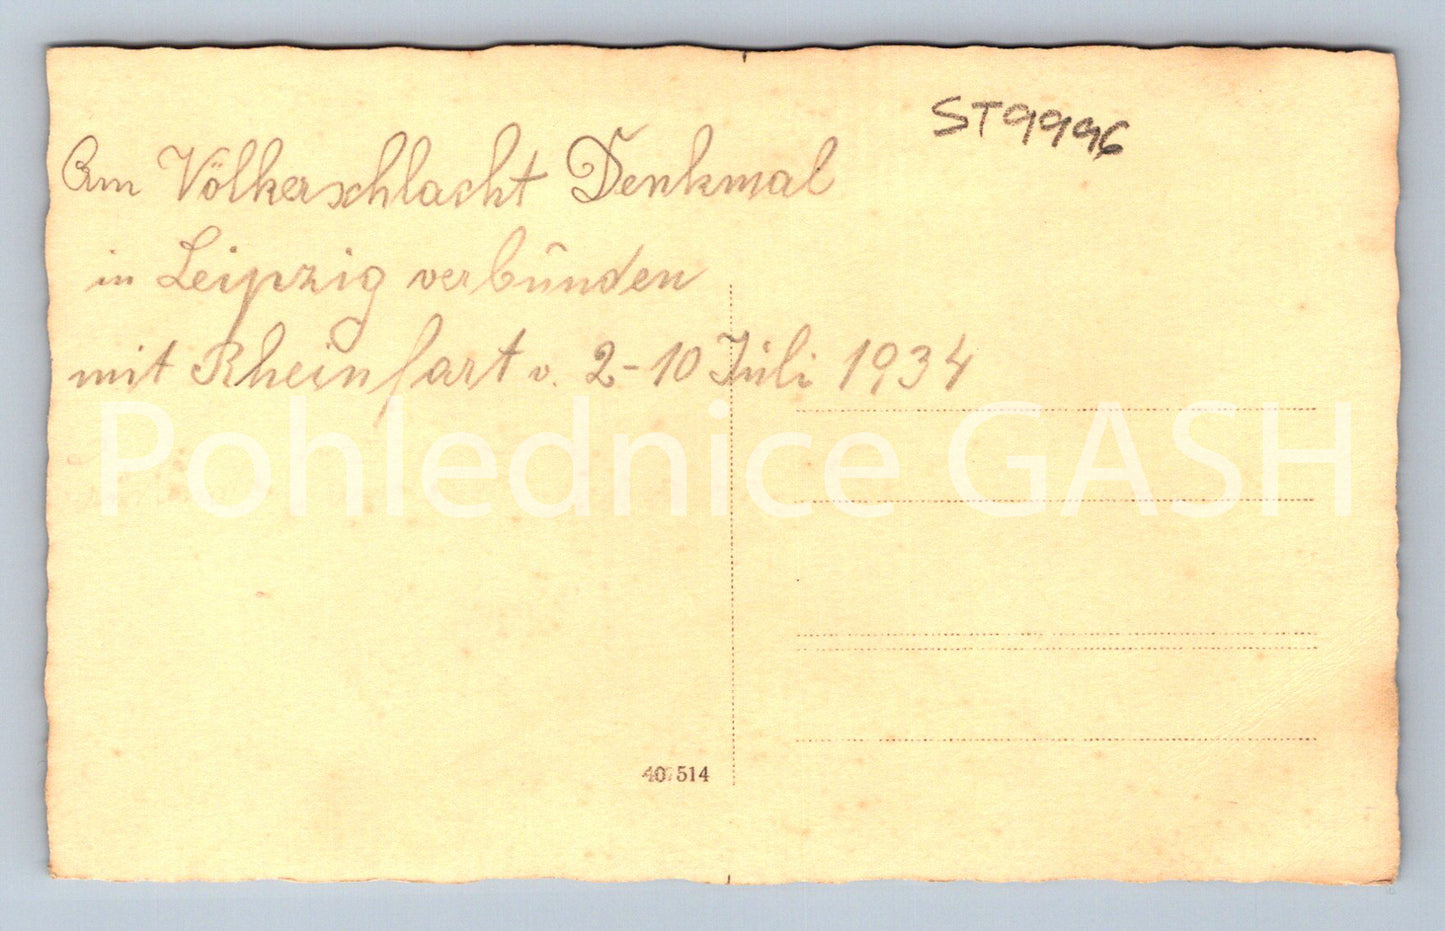 ST9996
Am Völkerschlacht Denkmal
in Leipzig verbūnden
mit Rheinfart v. 2-10 Jūli 1934
Pohlednice GASH
407514